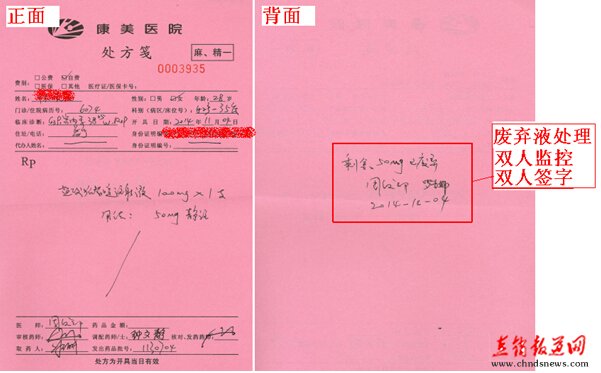 正面
康美医院
处方笺
麻、精一
0003935
费别: □公费 ☑自费
□医保 □其他 医疗证/医保卡号:
姓名: 性别: □男 ☑女 年龄: 28岁
门诊/住院病历号: 6074 科别(病区/床位号):
临床诊断: 开具日期: 2014年11月04日
住址/电话: 身份证明编号:
代办人姓名: 身份证明编号:
Rp
盐酸哌替啶注射液 100mg×1支
用法: 50mg 静注
医师: 药品金额:
审核药师: 调配药师/士: 钟文静 核对、发药药师:
取药人: 发出药品批号: 1130704
处方为开具当日有效
背面
剩余50mg已废弃
2014-11-04
废弃液处理
双人监控
双人签字
www.chndsnews.com